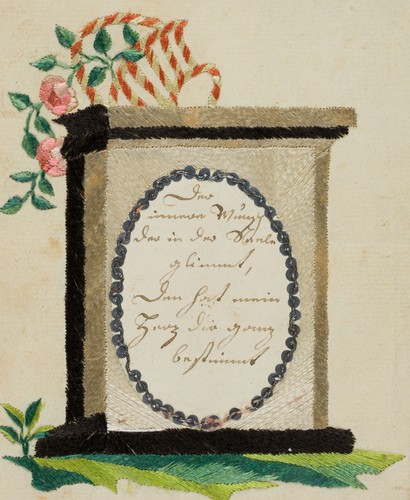 Der
innere Wunsch
der in der Seele
glimmt,
Den hat mein
Herz dir ganz
bestimmt